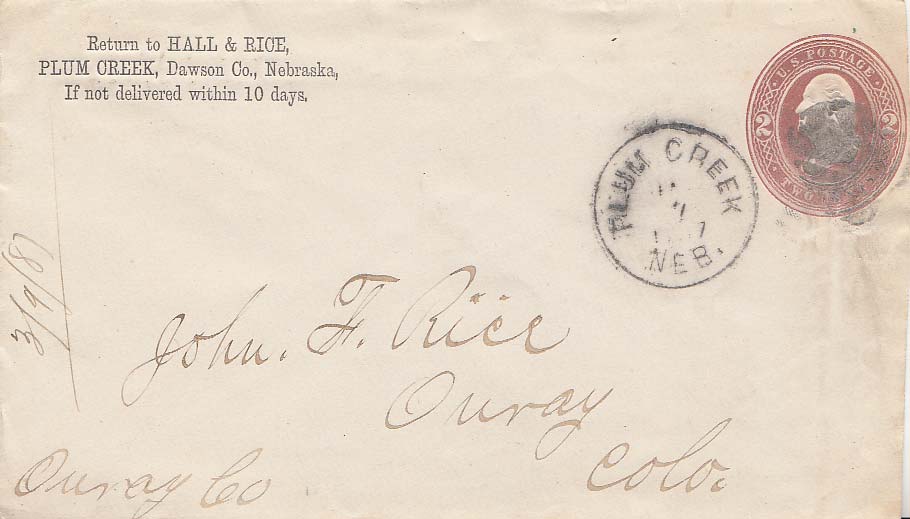 Return to HALL & RICE,
PLUM CREEK, Dawson Co., Nebraska,
If not delivered within 10 days.
U.S. POSTAGE
2 2
TWO
PLUM CREEK
7
NEB.
3/9/87
John. F. Rice
Ouray
Colo.
Ouray Co